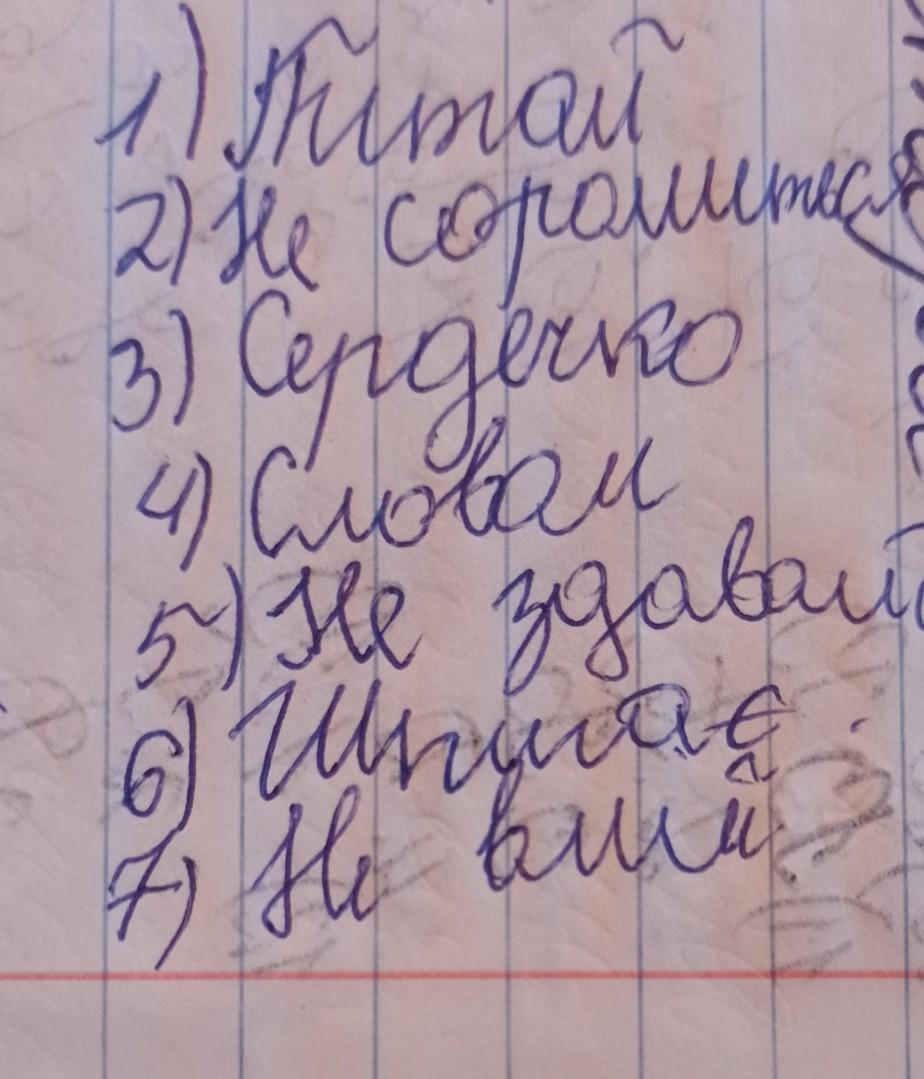 1) Питай
2) Не соромиться
3) Сердечко
4) Словам
5) Не здавай
6) Шпигає
7) Не вмій